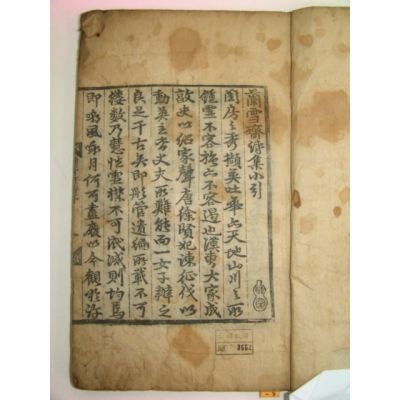 蘭雪齋詩集小引
閨房之秀擷英吐華亦天地山川之所
鍾靈不容强亦不容遏也漢曹大家成
敦史以紹家聲唐徐賢妃諫征伐以
動英主皆丈夫所難能而一女子辦之
良足千古矣即彤管遺編所載不可
縷數乃慧性靈襟不可泯滅則均焉
即嘲風咏月何可盡廢以今觀於許